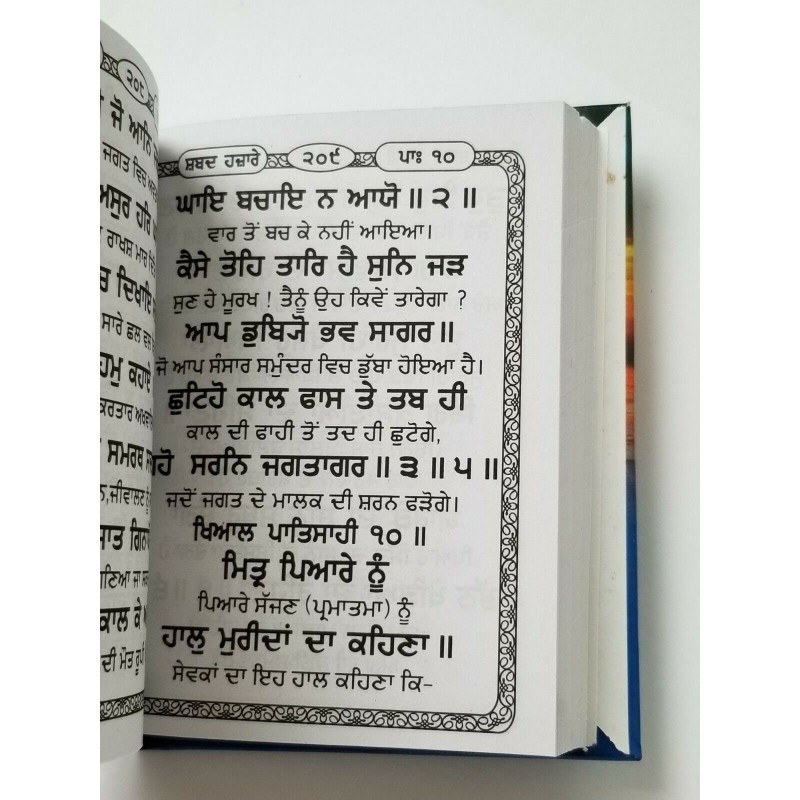 ੨੦੯
ਜੋ ਆਨਿ
ਜਗਤ ਵਿਚ
ਅਸੁਰ ਹਰਿ
ਰਾਖਸ਼ ਮਾਰ
ਦਿਖਾਇ
ਸਾਰੇ ਛਲ
ਕਹਾਏ
ਕਰਤਾਰ
ਸਮਰਥ
ਗਿਨ
ਕਾਲ ਕੇ
ਦੀ ਮੌਤ ਰੂਪੀ
ਸ਼ਬਦ ਹਜ਼ਾਰੇ ੨੦੯ ਪਾਃ ੧੦
ਘਾਇ ਬਚਾਇ ਨ ਆਯੋ ॥ ੨ ॥
ਵਾਰ ਤੋਂ ਬਚ ਕੇ ਨਹੀਂ ਆਇਆ।
ਕੈਸੇ ਤੋਹਿ ਤਾਰਿ ਹੈ ਸੁਨਿ ਜੜ
ਸੁਣ ਹੇ ਮੂਰਖ ! ਤੈਨੂੰ ਉਹ ਕਿਵੇਂ ਤਾਰੇਗਾ ?
ਆਪ ਡੁਬਿਯੋ ਭਵ ਸਾਗਰ ॥
ਜੋ ਆਪ ਸੰਸਾਰ ਸਮੁੰਦਰ ਵਿਚ ਡੁੱਬਾ ਹੋਇਆ ਹੈ।
ਛੁਟਿਹੋ ਕਾਲ ਫਾਸ ਤੇ ਤਬ ਹੀ
ਕਾਲ ਦੀ ਫਾਹੀ ਤੋਂ ਤਦ ਹੀ ਛੁਟੋਗੇ,
ਸਰਨਿ ਜਗਤਾਗਰ ॥ ੩ ॥ ੫ ॥
ਜਦੋਂ ਜਗਤ ਦੇ ਮਾਲਕ ਦੀ ਸ਼ਰਨ ਫੜੋਗੇ।
ਖਿਆਲ ਪਾਤਿਸਾਹੀ ੧੦ ॥
ਮਿਤ੍ਰ ਪਿਆਰੇ ਨੂੰ
ਪਿਆਰੇ ਸੱਜਣ (ਪ੍ਰਮਾਤਮਾ) ਨੂੰ
ਹਾਲੁ ਮੁਰੀਦਾਂ ਦਾ ਕਹਿਣਾ ॥
ਸੇਵਕਾਂ ਦਾ ਇਹ ਹਾਲ ਕਹਿਣਾ ਕਿ–